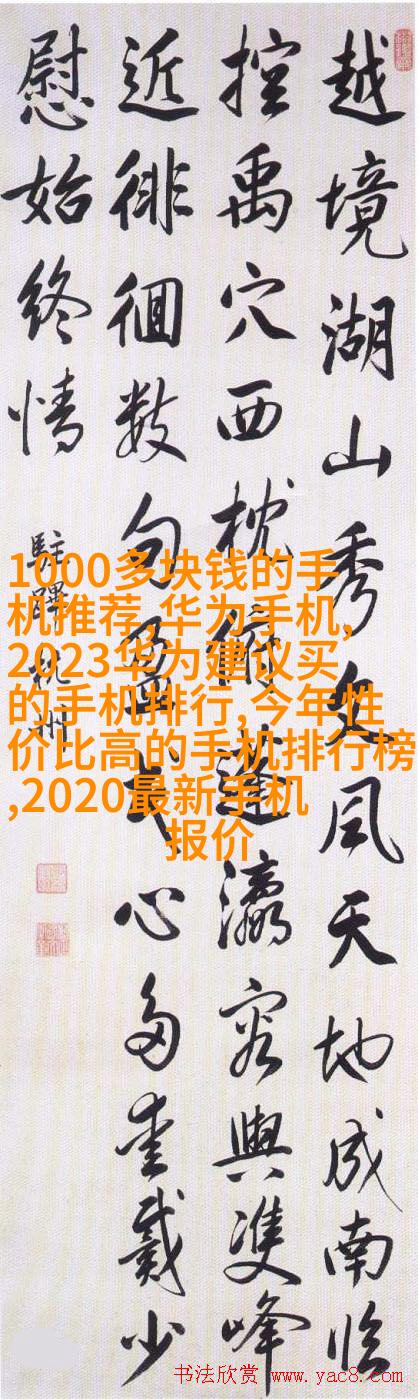 越境湖山秀文風天地成南臨
控禹穴西枕俯蓬瀛容與雙峰
近徘徊數句盈民心多愛戴少
慰始終情
駐蹕杭州
1000多块钱的手
机推荐,华为手机,
2023华为建议买
的手机排行,今年性
价比高的手机排行榜
,2020最新手机
报价
书法欣赏 www.yac8.com